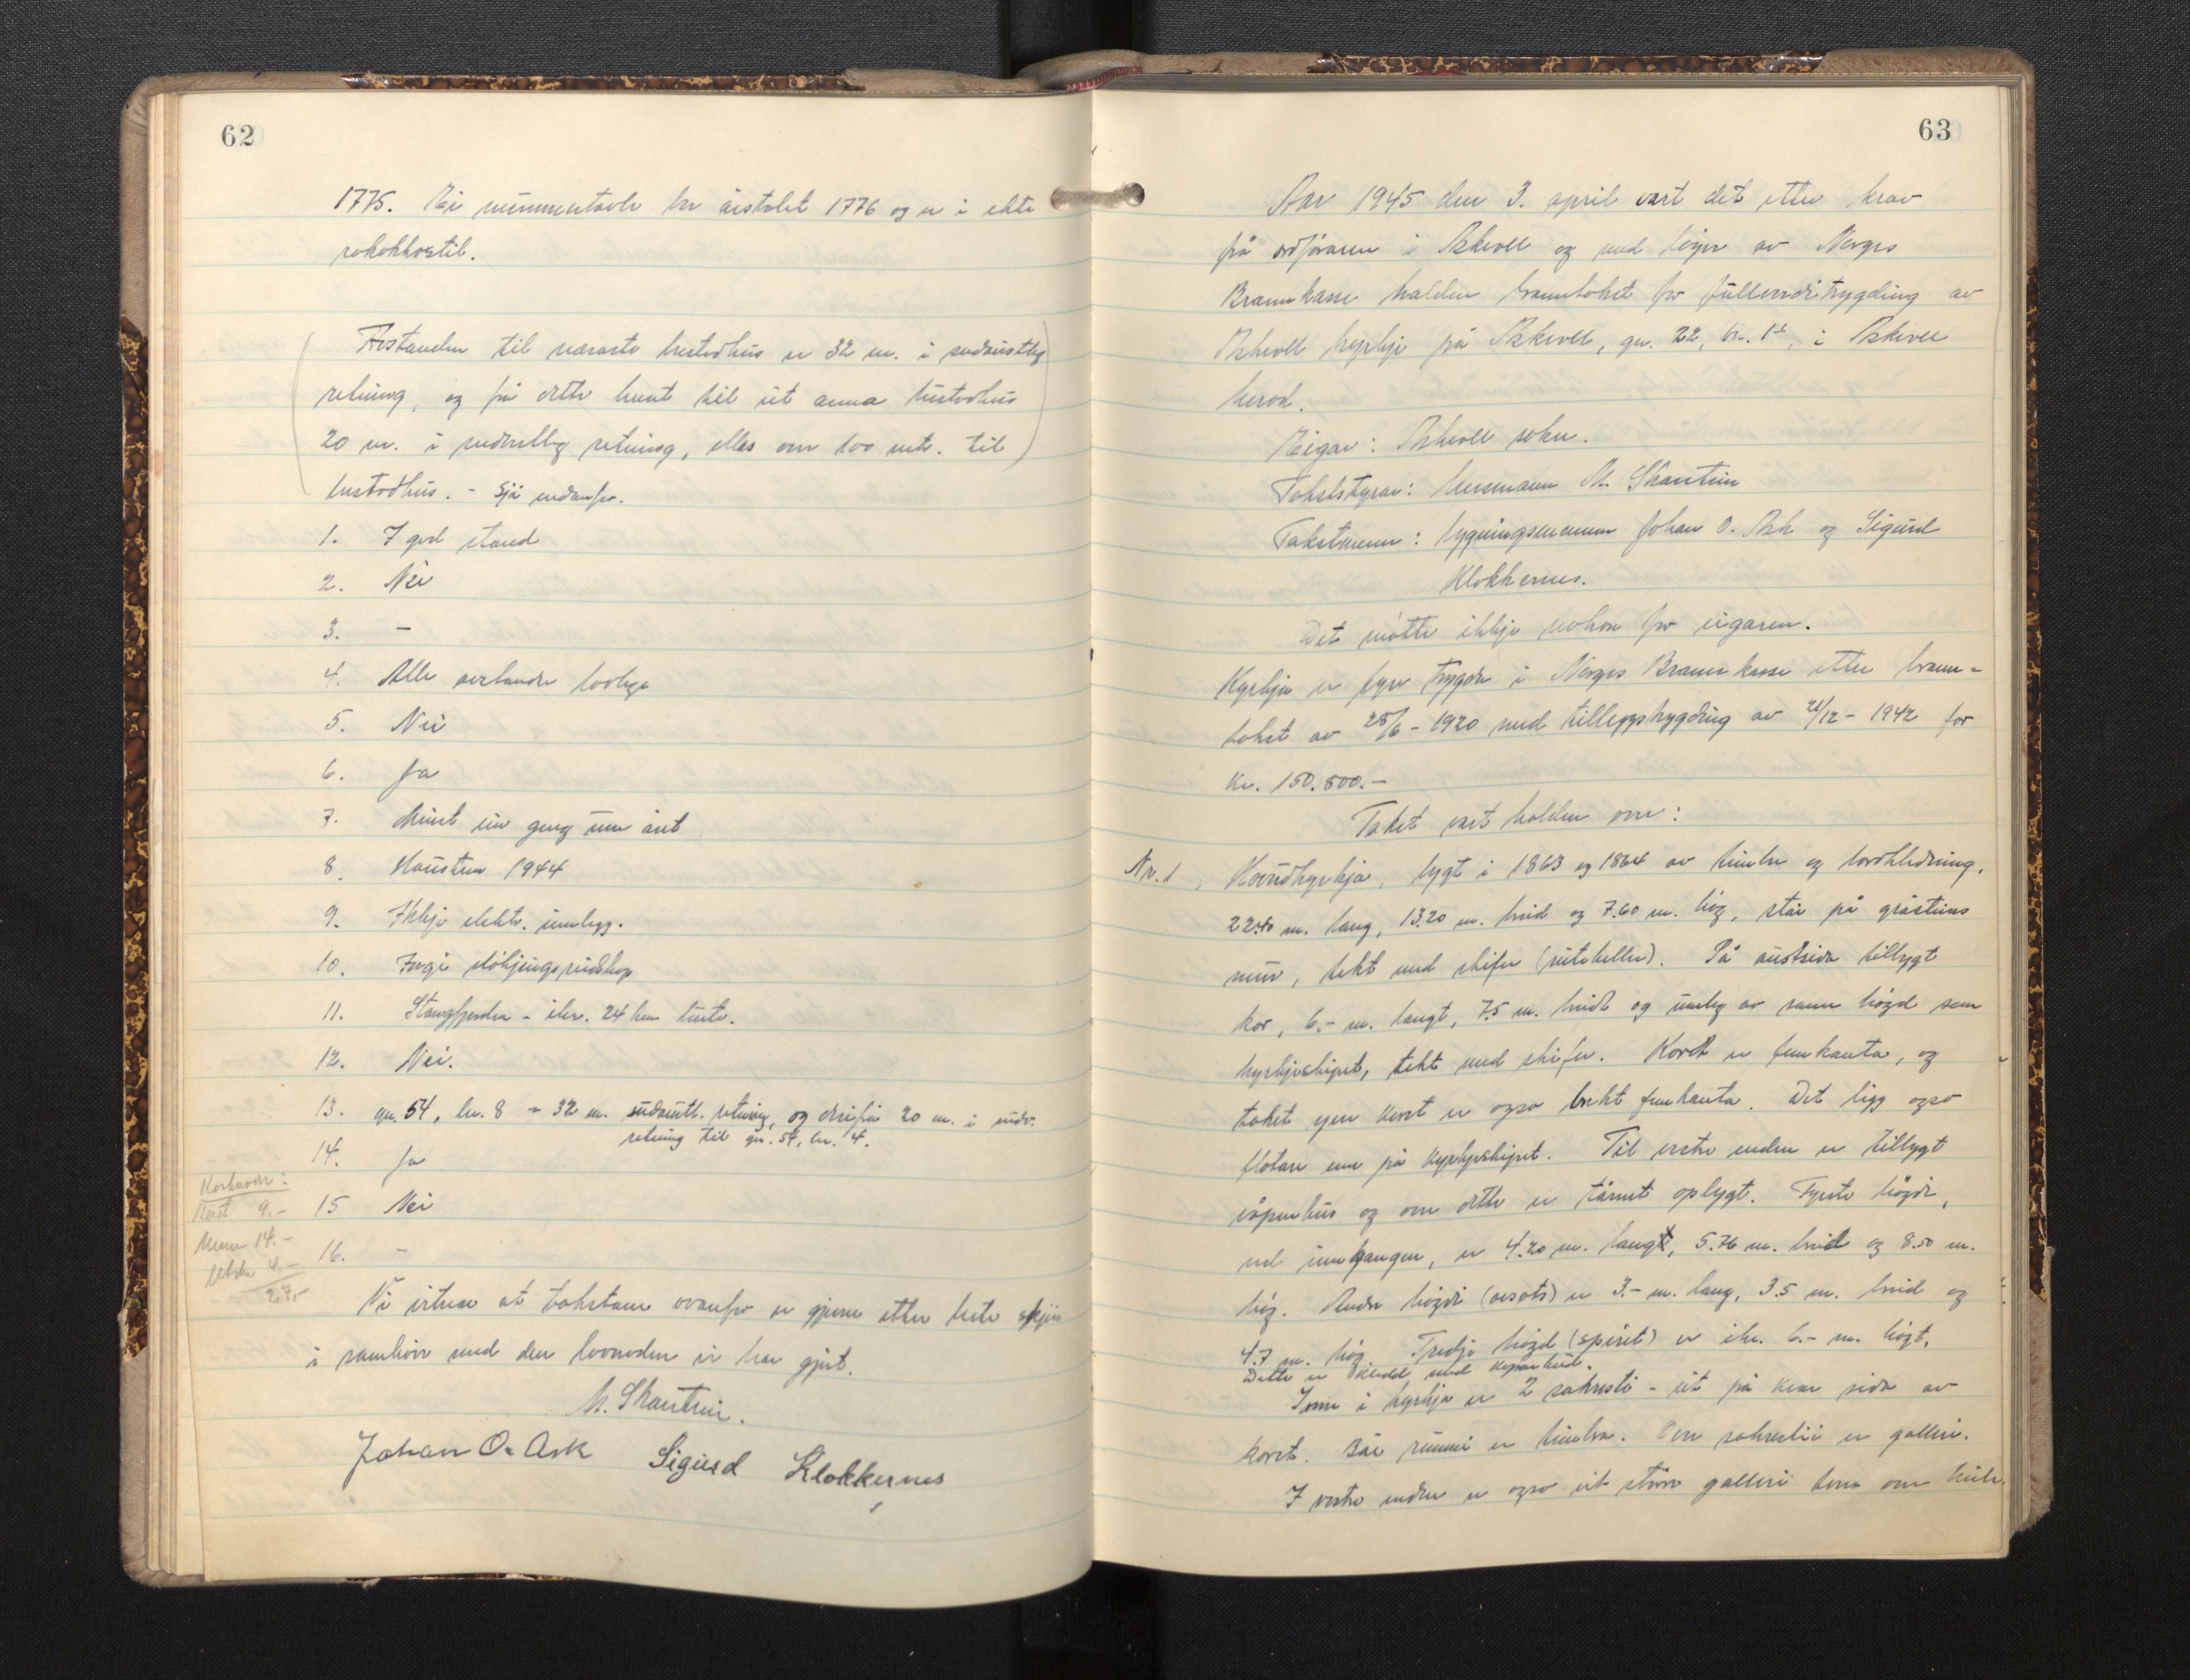 62
1775. Ei minnestavle ber årstalet 1776 og er i ekte
rokokkostil.
Avstanden til næraste bustadhus er 32 m. i sudaustleg
retning, og frå dette huset til eit anna bustadhus
20 m. i sudaustleg retning, elles over 100 mtr. til
bustadhus. - Sjå nedanfor.
1. I god stand
2. Nei
3. -
4. Alle avstandar lovlege
5. Nei
6. Ja
7. Minst ein gong um året
8. Hausten 1944
9. Ikkje elektr. innlegg.
10. Ingi sløkjingsreidskap
11. Stongfjorden - ikr. 24 km burte.
12. Nei.
13. gn. 54, br. 8 - 32 m. sudaustl. retning, og derifrå 20 m. i sudv.
retning til gn. 54, br. 4.
14. Ja
15 Nei
16. -
Kostnader:
Takst 9.-
Menn 14.-
Utskr. 4.-
27.-
Vi vitnar at takstane ovanfor er gjevne etter beste skjøn
i samhøve med den lovnaden vi har gjevt.
M. Skantun.
Johan O. Ask Sigurd Klokkernes
63
Aar 1945 den 3. april vart det etter krav
frå ordføraren i Askvoll og med løyve av Norges
Brannkasse halden branntakst for fullverditrygding av
Askvoll kyrkje på Askvoll, gn. 22, br. 1, i Askvoll
herad.
Eigar: Askvoll sokn.
Takststyrar: lensmann M. Skantun
Takstmenn: bygningsmennene Johan O. Ask og Sigurd
Klokkernes.
Det møtte ikkje nokon for eigaren.
Kyrkja er fyrr trygda i Norges Brannkasse etter brann-
takst av 28/6 - 1920 med tilleggstrygding av 21/12 - 1942 for
Kr. 150.800.-
Takst vart halden over:
Nr. 1, Hovudkyrkja, bygt i 1863 og 1864 av timber og bordkledning,
22.40 m. lang, 13.20 m. breid og 7.60 m. høg, står på gråsteins
mur, tekt med skifer (ruteheller). På austsida tilbygt
kor, 6.- m. langt, 7.5 m. breidt og umlag av same høgd som
kyrkjeskipet, tekt med skifer. Koret er femkanta, og
taket yver koret er ogso brekt femkanta. Det ligg ogso
flatare enn på kyrkjeskipet. Til vestre enden er tilbygt
våpenhus og over dette er tårnet opbygt. Fyrste høgdi,
ved inngangen, er 4.20 m. langt, 5.76 m. breid og 8.50 m.
høg. Andre høgdi (avsats) er 3.- m. lang, 3.5 m. breid og
4.7 m. høg. Tredje høgd (spiret) er ikr. 6.- m. høgt.
Dette er kledd med koparhud.
Inne i kyrkja er 2 sakresti - eit på kvar side av
koret. Båe rummi er timbra. Over sakrestii er galleri.
I vestre enden er ogso eit større galleri tvers over heile